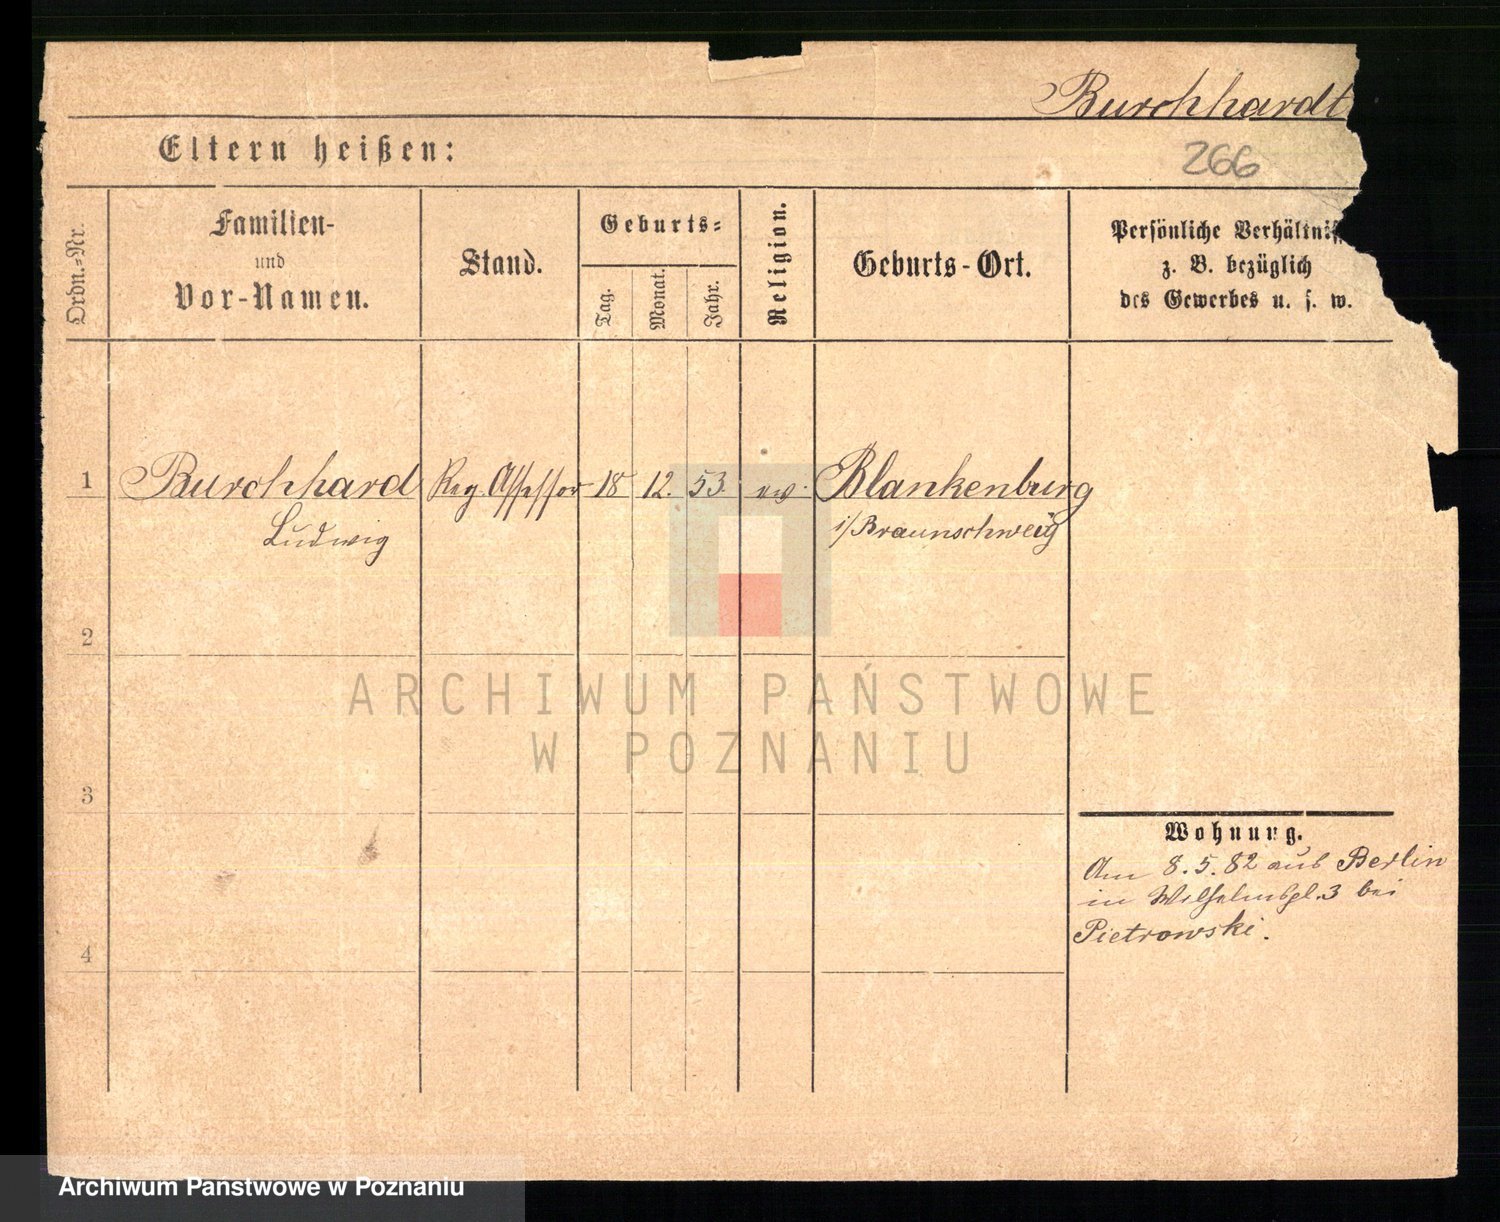 Burchhardt
Eltern heißen:
266
Ordn.-Nr.
Familien-
und
Vor-Namen.
Stand.
Geburts-
Tag.
Monat.
Jahr.
Religion.
Geburts-Ort.
Persönliche Verhältniss
z. B. bezüglich
des Gewerbes u. s. w.
1 Burchhard Reg. Assessor 18 12. 53. ev. Blankenburg
Ludwig i/Braunschweig
2
ARCHIWUM PAŃSTWOWE
W POZNANIU
3
Wohnung.
Am 8.5.82 aus Berlin
in Wilhelmspl. 3 bei
Pietrowski.
4
Archiwum Państwowe w Poznaniu